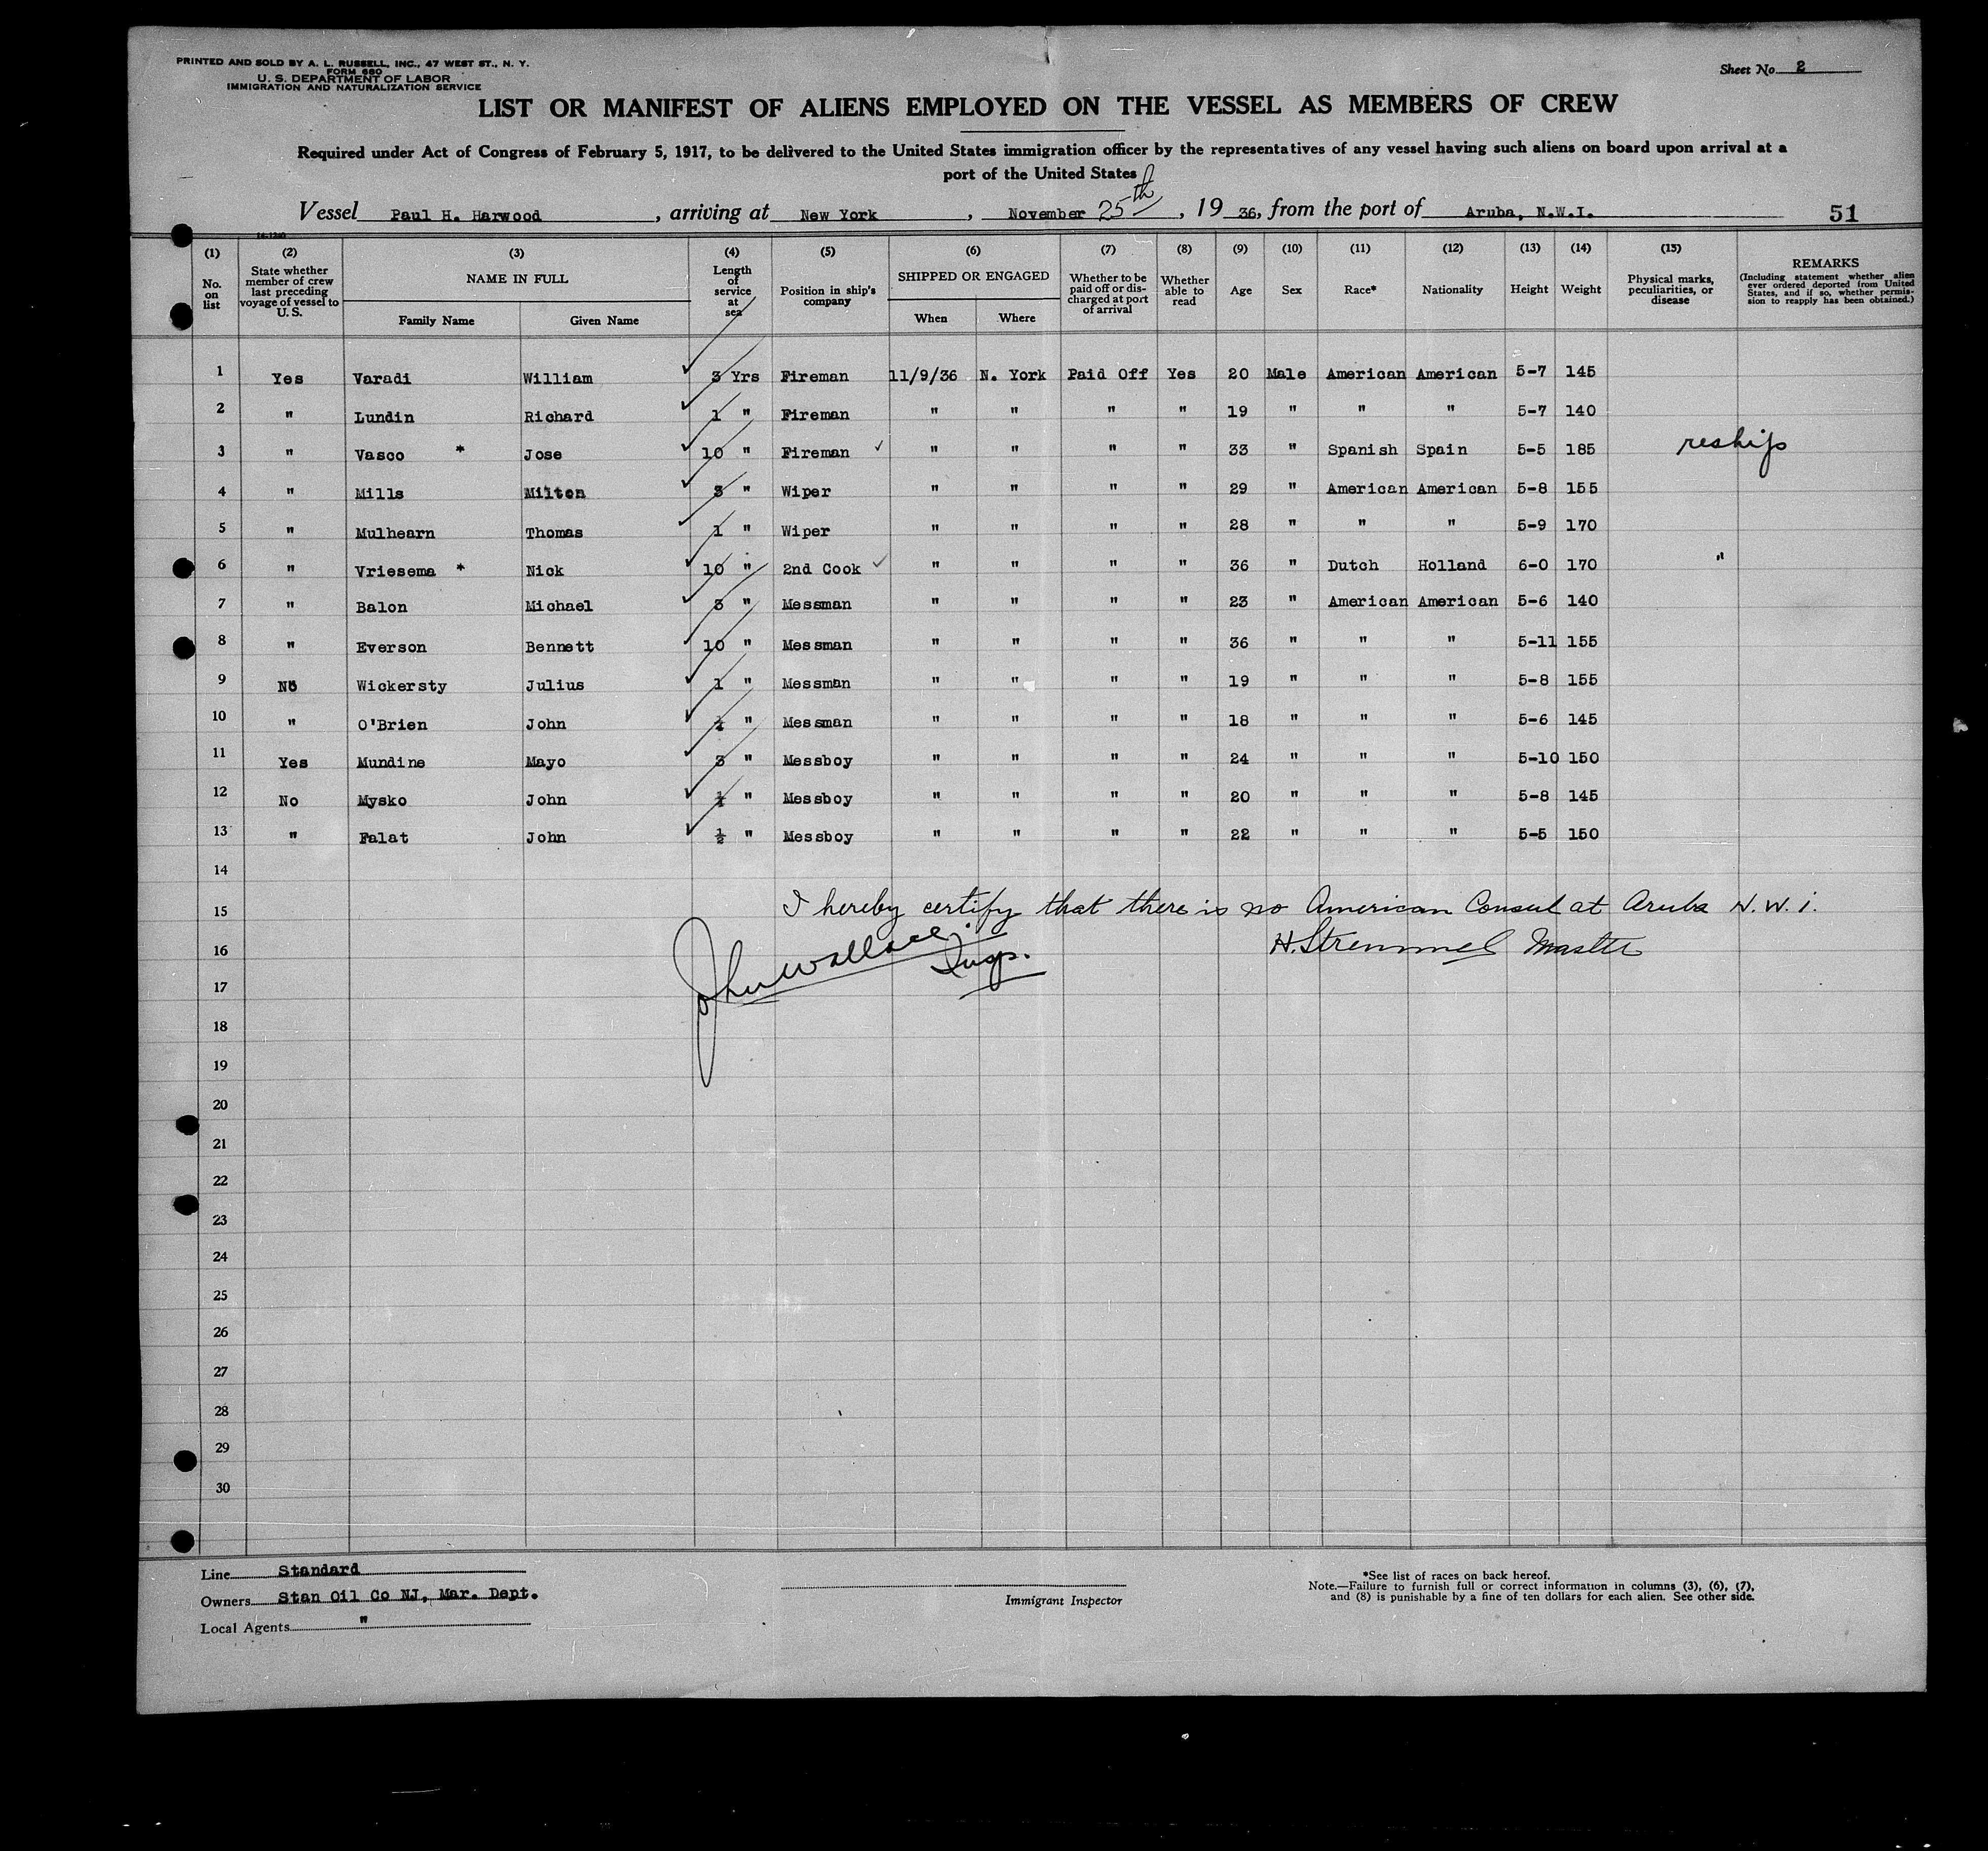 PRINTED AND SOLD BY A. L. RUSSELL, INC., 47 WEST ST., N. Y.
FORM 680
U. S. DEPARTMENT OF LABOR
IMMIGRATION AND NATURALIZATION SERVICE
Sheet No. 2
LIST OR MANIFEST OF ALIENS EMPLOYED ON THE VESSEL AS MEMBERS OF CREW
Required under Act of Congress of February 5, 1917, to be delivered to the United States immigration officer by the representatives of any vessel having such aliens on board upon arrival at a
port of the United States
Vessel Paul H. Harwood, arriving at New York, November 25th, 19 36, from the port of Aruba, N.W.I. 51
(1) (2) (3) (4) (5) (6) (7) (8) (9) (10) (11) (12) (13) (14) (15)
No. on list
State whether member of crew last preceding voyage of vessel to U. S.
NAME IN FULL
Family Name Given Name
Length of service at sea
Position in ship's company
SHIPPED OR ENGAGED
When Where
Whether to be paid off or discharged at port of arrival
Whether able to read
Age Sex Race* Nationality Height Weight
Physical marks, peculiarities, or disease
REMARKS
(Including statement whether alien ever ordered deported from United States, and if so, whether permission to reapply has been obtained.)
1 Yes Varadi William ✓ 3 Yrs Fireman 11/9/36 N. York Paid Off Yes 20 Male American American 5-7 145
2 " Lundin Richard ✓ 1 " Fireman " " " " 19 " " " 5-7 140
3 " Vasco * Jose ✓ 10 " Fireman ✓ " " " " 33 " Spanish Spain 5-5 185 reship
4 " Mills Milton ✓ 3 " Wiper " " " " 29 " American American 5-8 155
5 " Mulhearn Thomas ✓ 1 " Wiper " " " " 28 " " " 5-9 170
6 " Vriesema * Nick ✓ 10 " 2nd Cook ✓ " " " " 36 " Dutch Holland 6-0 170 "
7 " Balon Michael ✓ 3 " Messman " " " " 23 " American American 5-6 140
8 " Everson Bennett ✓ 10 " Messman " " " " 36 " " " 5-11 155
9 No Wickersty Julius ✓ 1 " Messman " " " " 19 " " " 5-8 155
10 " O'Brien John ✓ " Messman " " " " 18 " " " 5-6 145
11 Yes Mundine Mayo ✓ 3 " Messboy " " " " 24 " " " 5-10 150
12 No Mysko John ✓ " Messboy " " " " 20 " " " 5-8 145
13 " Falat John ✓ ½ " Messboy " " " " 22 " " " 5-5 150
14
15 I hereby certify that there is no American Consul at Aruba N. W. I.
16 John Wallace Insp. H. Stremmel Master
17
18
19
20
21
22
23
24
25
26
27
28
29
30
Line Standard
Owners Stan Oil Co NJ, Mar. Dept.
Local Agents "
Immigrant Inspector
*See list of races on back hereof.
Note.—Failure to furnish full or correct information in columns (3), (6), (7),
and (8) is punishable by a fine of ten dollars for each alien. See other side.